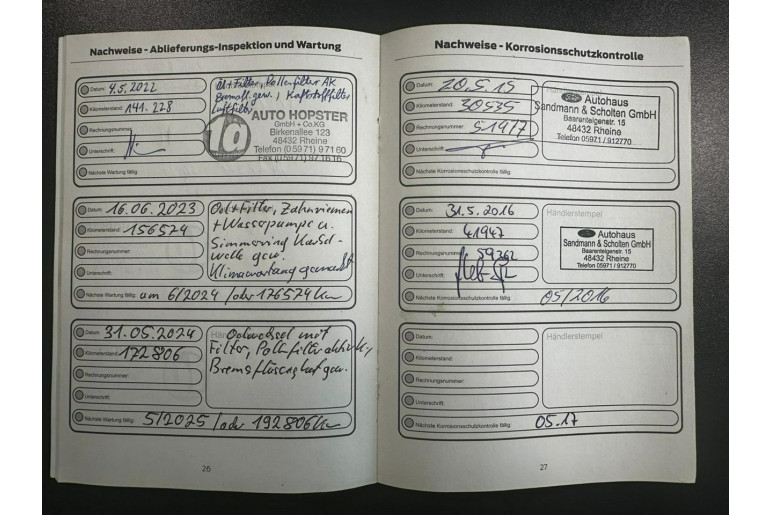 Nachweise - Ablieferungs-Inspektion und Wartung
Datum: 4.5.2022
Kilometerstand: 141.228
Rechnungsnummer:
Unterschrift:
Nächste Wartung fällig:
Öl+Filter, Pollenfilter AK
Bremsfl. gew., Kraftstoffilter
Luftfilter
1a AUTO HOPSTER
GmbH + Co.KG
Birkenallee 123
48432 Rheine
Telefon (05971) 97160
Fax (05971) 971616
Datum: 16.06.2023
Kilometerstand: 156574
Rechnungsnummer:
Unterschrift:
Nächste Wartung fällig: um 6/2024 /oder 176574 Km
Oel+Filter, Zahnriemen
+ Wasserpumpe u.
Simmerring
welle gew.
Klimawartung gemacht
Datum: 31.05.2024
Kilometerstand: 172806
Rechnungsnummer:
Unterschrift:
Nächste Wartung fällig: 5/2025 /oder 192806 Km
Oelwechsel mit
Filter, Pollenfilter aktivk.,
Bremsflüssigkeit gew.
26
Nachweise - Korrosionsschutzkontrolle
Datum: 20.5.15
Kilometerstand: 30535
Rechnungsnummer: 51977
Unterschrift:
Nächste Korrosionsschutzkontrolle fällig:
Autohaus
Sandmann & Scholten GmbH
Basarenteigenstr. 15
48432 Rheine
Telefon 05971 / 912770
Datum: 31.5.2016
Kilometerstand: 41947
Rechnungsnummer: 59362
Unterschrift:
Nächste Korrosionsschutzkontrolle fällig: 05/2016
Händlerstempel
Autohaus
Sandmann & Scholten GmbH
48432 Rheine
Telefon 05971 / 912770
Datum:
Kilometerstand:
Rechnungsnummer:
Unterschrift:
Nächste Korrosionsschutzkontrolle fällig: 05.17
Händlerstempel
27